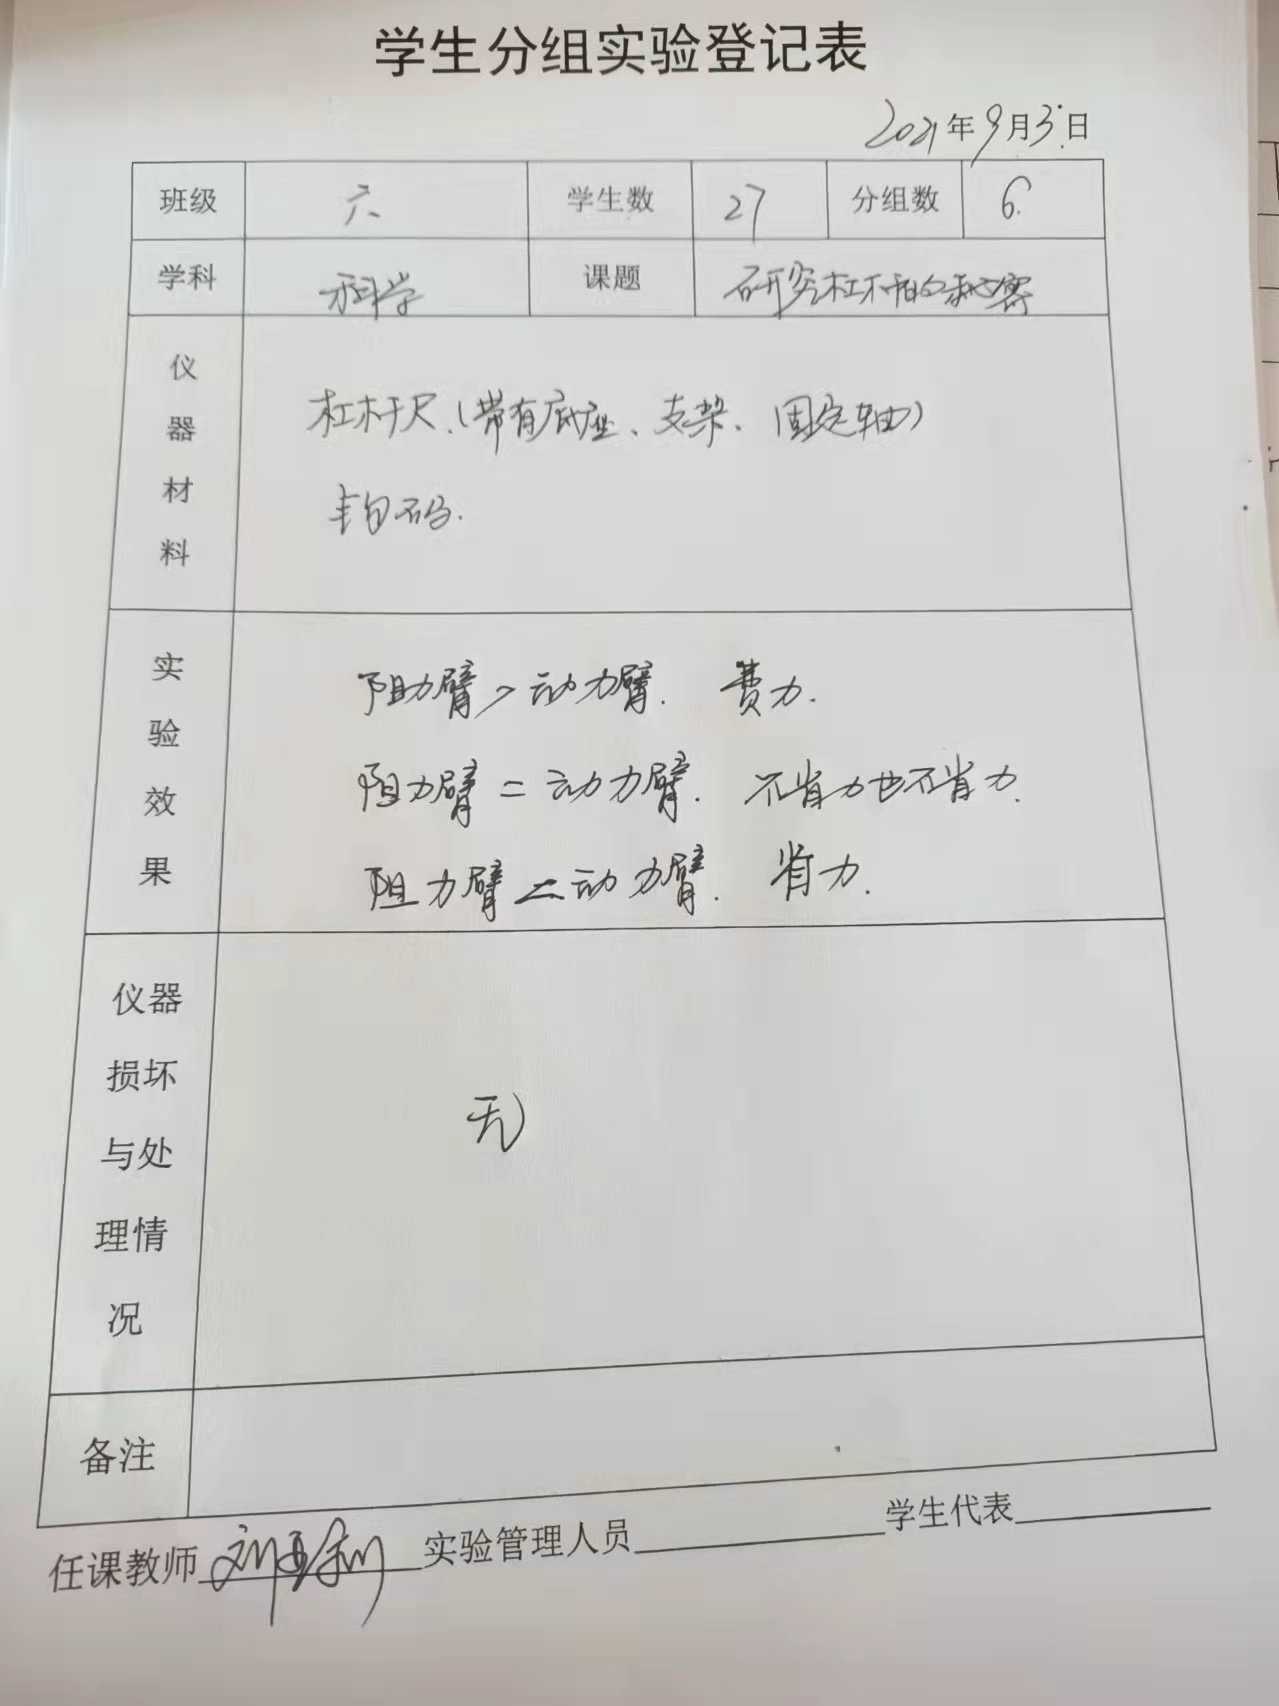 学生分组实验登记表
2021年9月3日
班级 六 学生数 27 分组数 6.
学科 科学 课题 研究杠杆的秘密
仪器材料 杠杆尺.(带有底座、支架、固定轴)
钩码.
实验效果 阻力臂>动力臂. 费力.
阻力臂=动力臂. 不省力也不省力.
阻力臂<动力臂. 省力.
仪器
损坏
与处
理情
况
无
备注
任课教师 实验管理人员 学生代表